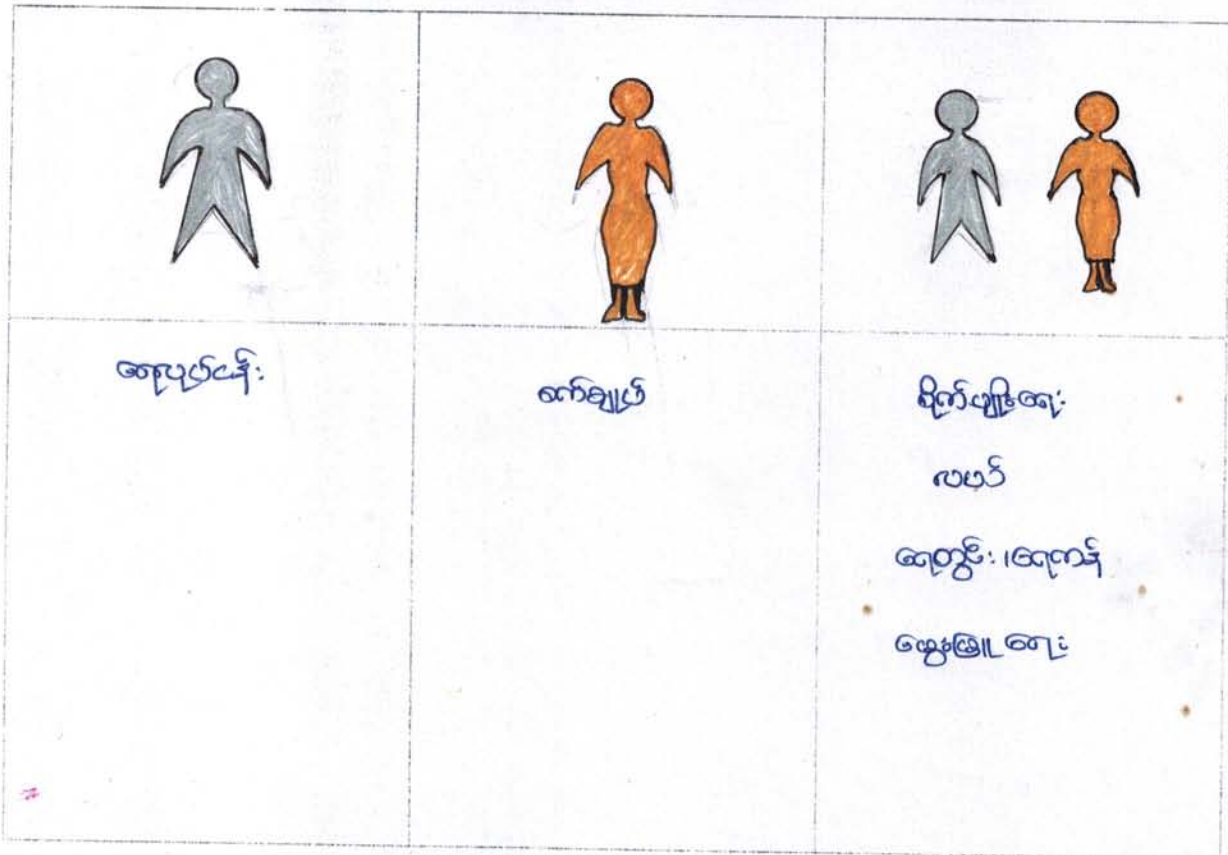 ရေလုပ်ငန်း
စက်ချုပ်
စိုက်ပျိုးရေး
လမယ်
ရေတွင်း၊ရေကန်
မွေးမြူရေး